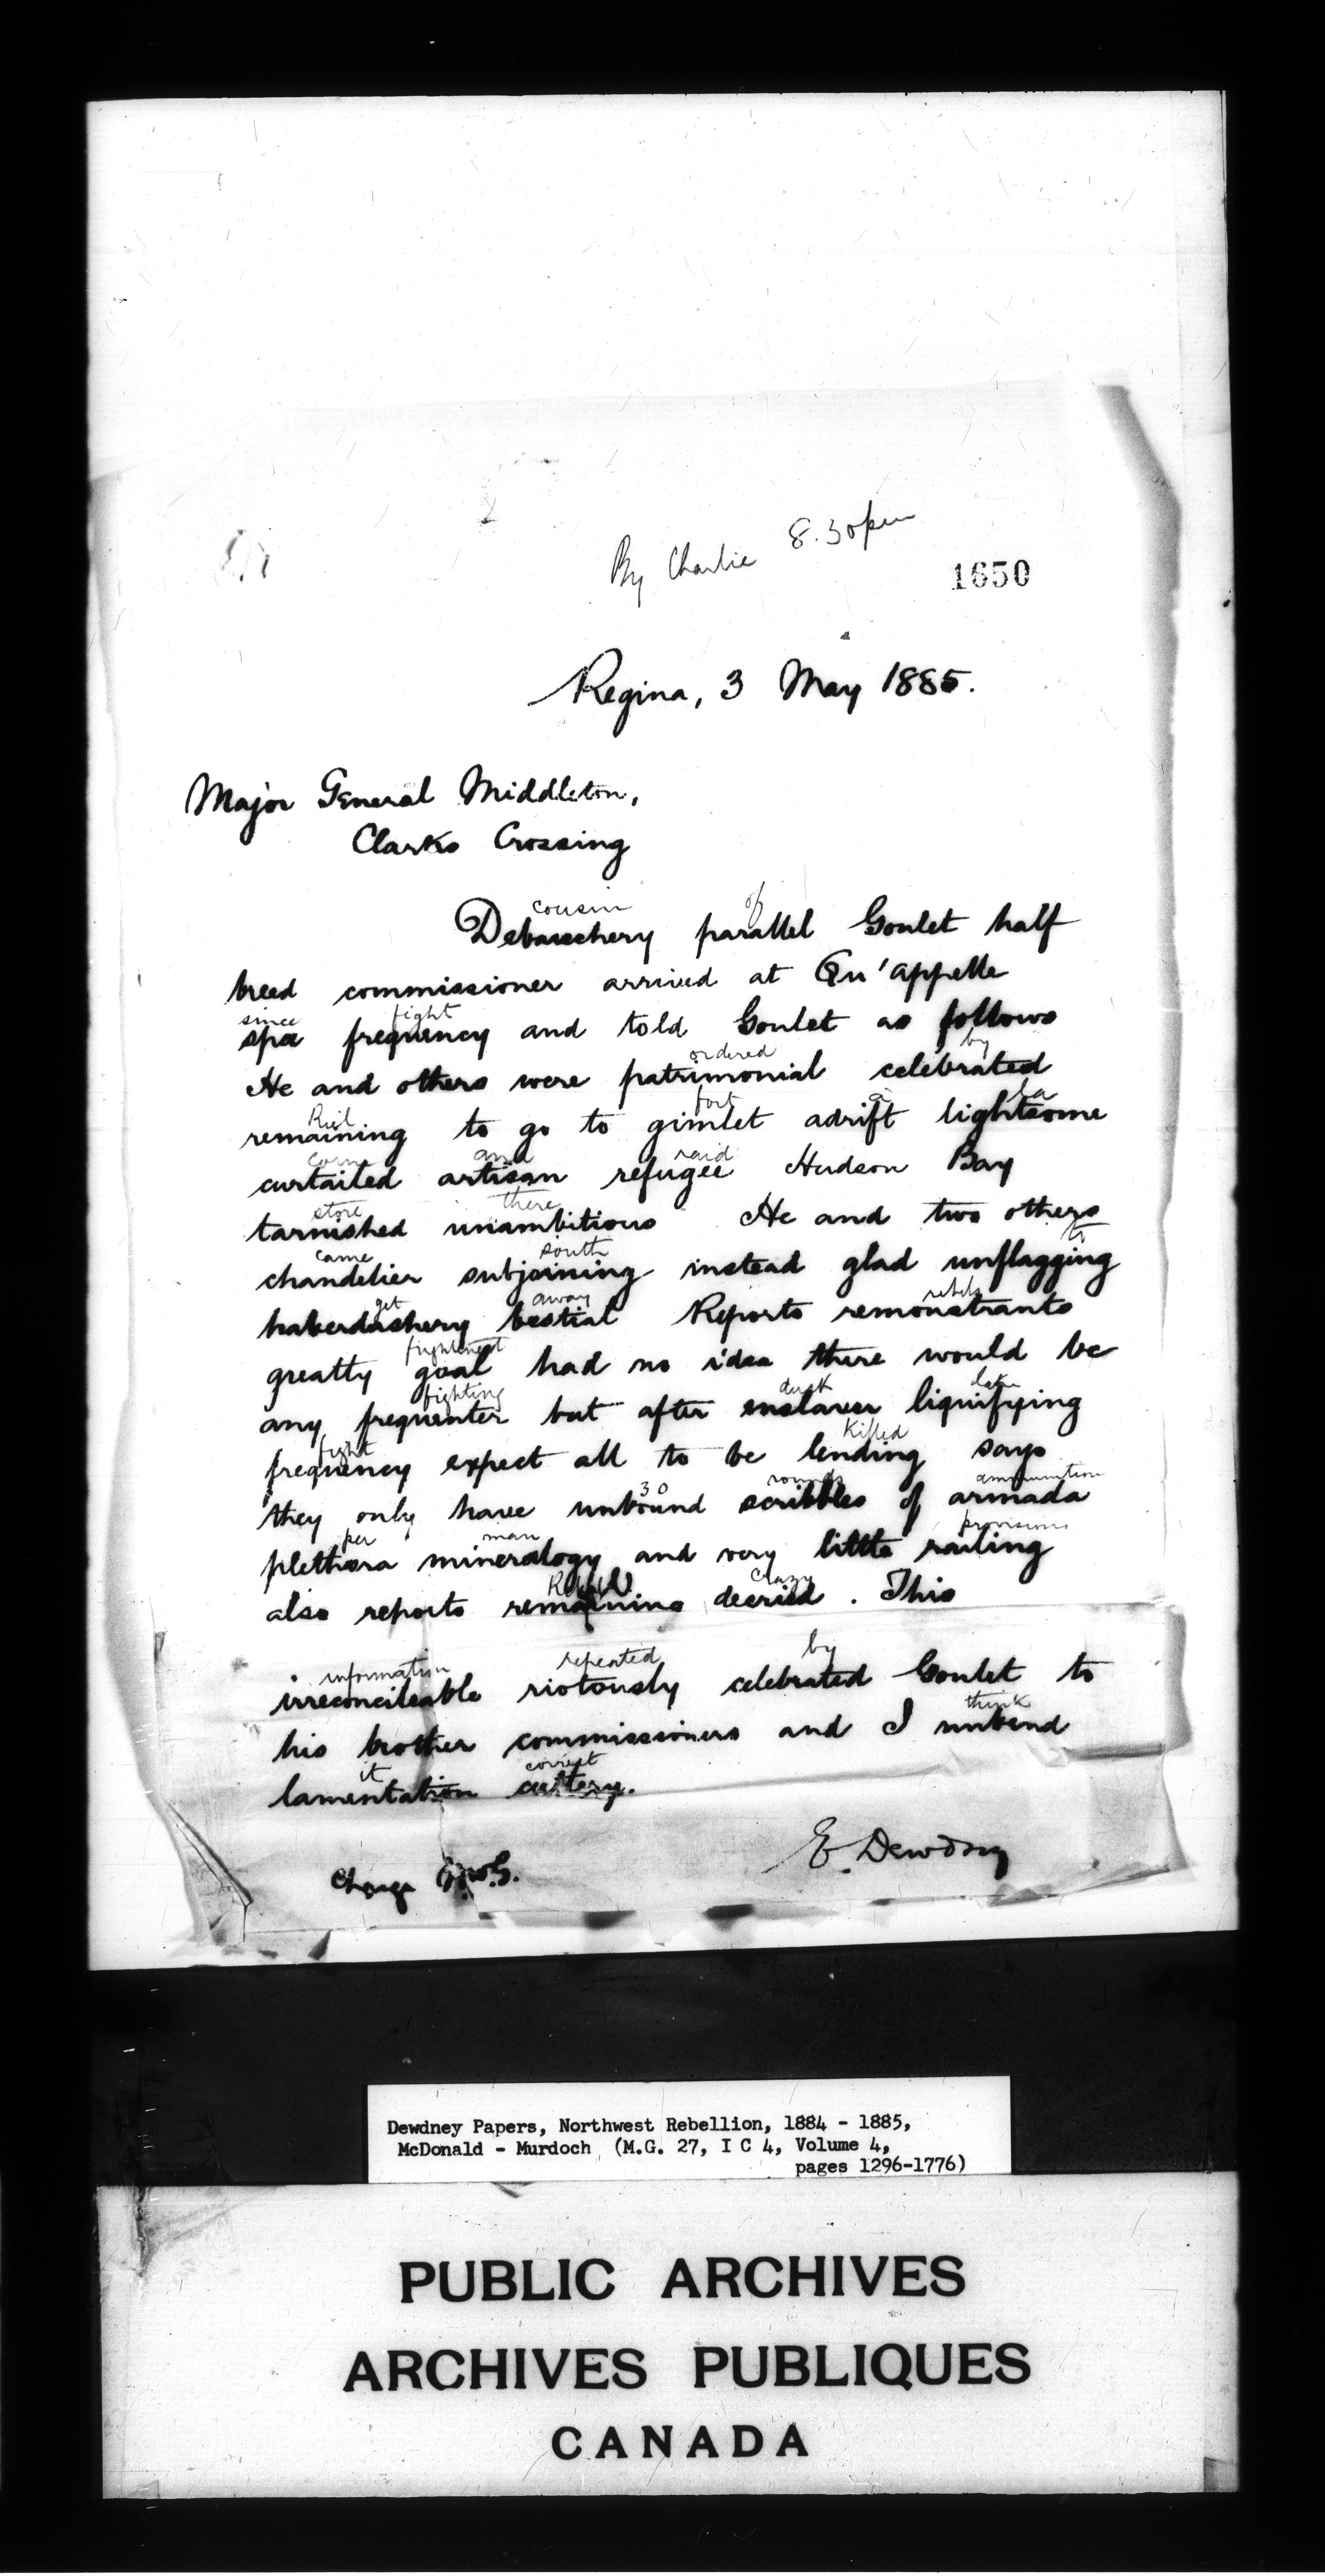 By Charlie 8.30 pm
1650
Regina, 3 May 1885.
Major General Middleton,
Clarks Crossing
cousin of
Debauchery parallel Goulet half
breed commissioner arrived at Qu'appelle
since fight
spa frequency and told Goulet as follows
ordered by
He and others were patrimonial celebrated
Riel fort a la
remaining to go to gimlet adrift lightsome
corne and raid
curtailed artisan refugee Hudson Bay
store there
tarnished unambitious He and two others
came south to
chandelier subjoining instead glad unflagging
get away rebels
haberdashery bestial Reports remonstrants
frightened
greatly goal had no idea there would be
fighting duck lake
any frequenter but after enslaver liquifying
fight killed
frequency expect all to be lending says
30 rounds ammunition
they only have unbound scribbles of armada
per man provisions
plethora mineralogy and very little railing
Riel crazy
also reports remaining decried. This
information repeated by
irreconcileable riotously celebrated Goulet to
think
his brother commissioners and I unbend
it correct
lamentation cuttery.
E. Dewdney
Charge
Dewdney Papers, Northwest Rebellion, 1884 - 1885,
McDonald - Murdoch (M.G. 27, I C 4, Volume 4,
pages 1296-1776)
PUBLIC ARCHIVES
ARCHIVES PUBLIQUES
CANADA